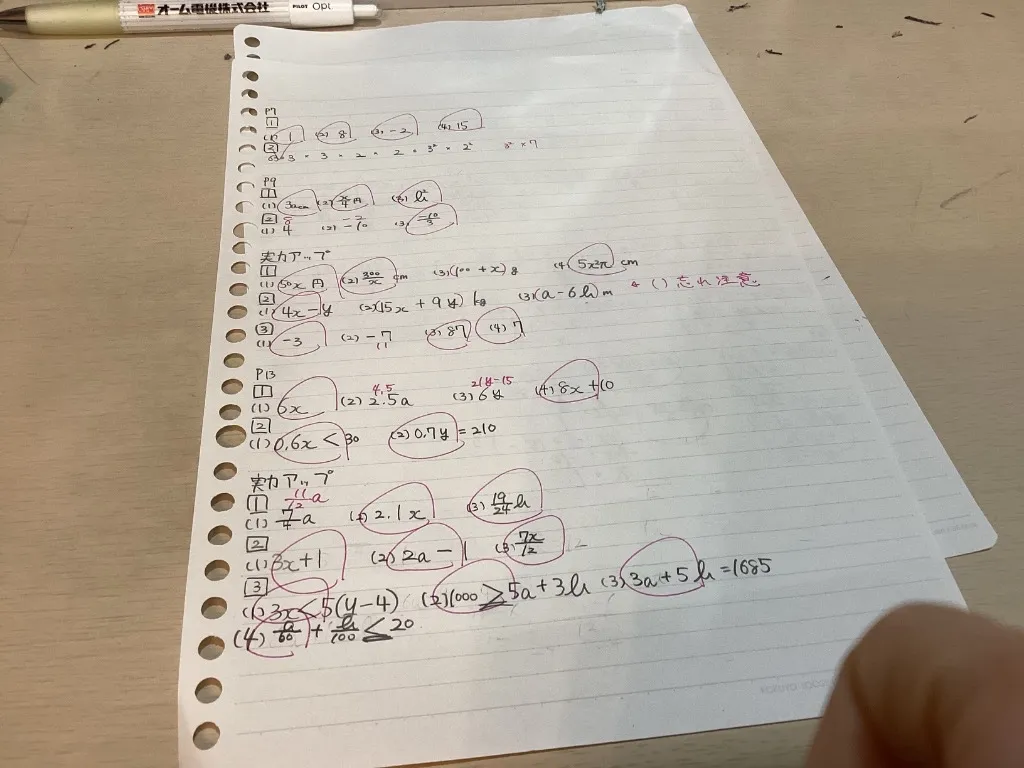 オーム電機株式会社 PILOT Opt.
P7
1
(1) 1 (2) 8 (3) -2 (4) 15
2
P9
1
(1) (2) 円 (3) h²
2
(1) (2) (3) -10/3
実力アップ
1
(1) 50x 円 (2) 300/x cm (3)(100 + x) g (4) 5x²π cm
2
(1) 4x - y (2)(15x + 9y) kg (3)(a - 6h) m ← ( ) 忘れ注意
3
(1) -3 (2) -7 (3) 87 (4) 7
11
P13
1
4.5 21y-15
(1) 6x (2) 2.5a (3) 6y (4) 8x + 10
2
(1) 0.6x < 30 (2) 0.7y = 210
実力アップ
1
11/12 a
(1) 7/4 a (2) 2.1x (3) 19/24 h
2
(1) 3x + 1 (2) 2a - 1 (3) 7x/12
3
(1) 3x < 5(y-4) (2) 1000 ≧ 5a + 3h (3) 3a + 5h = 1685
(4) a/60 + h/100 ≦ 20